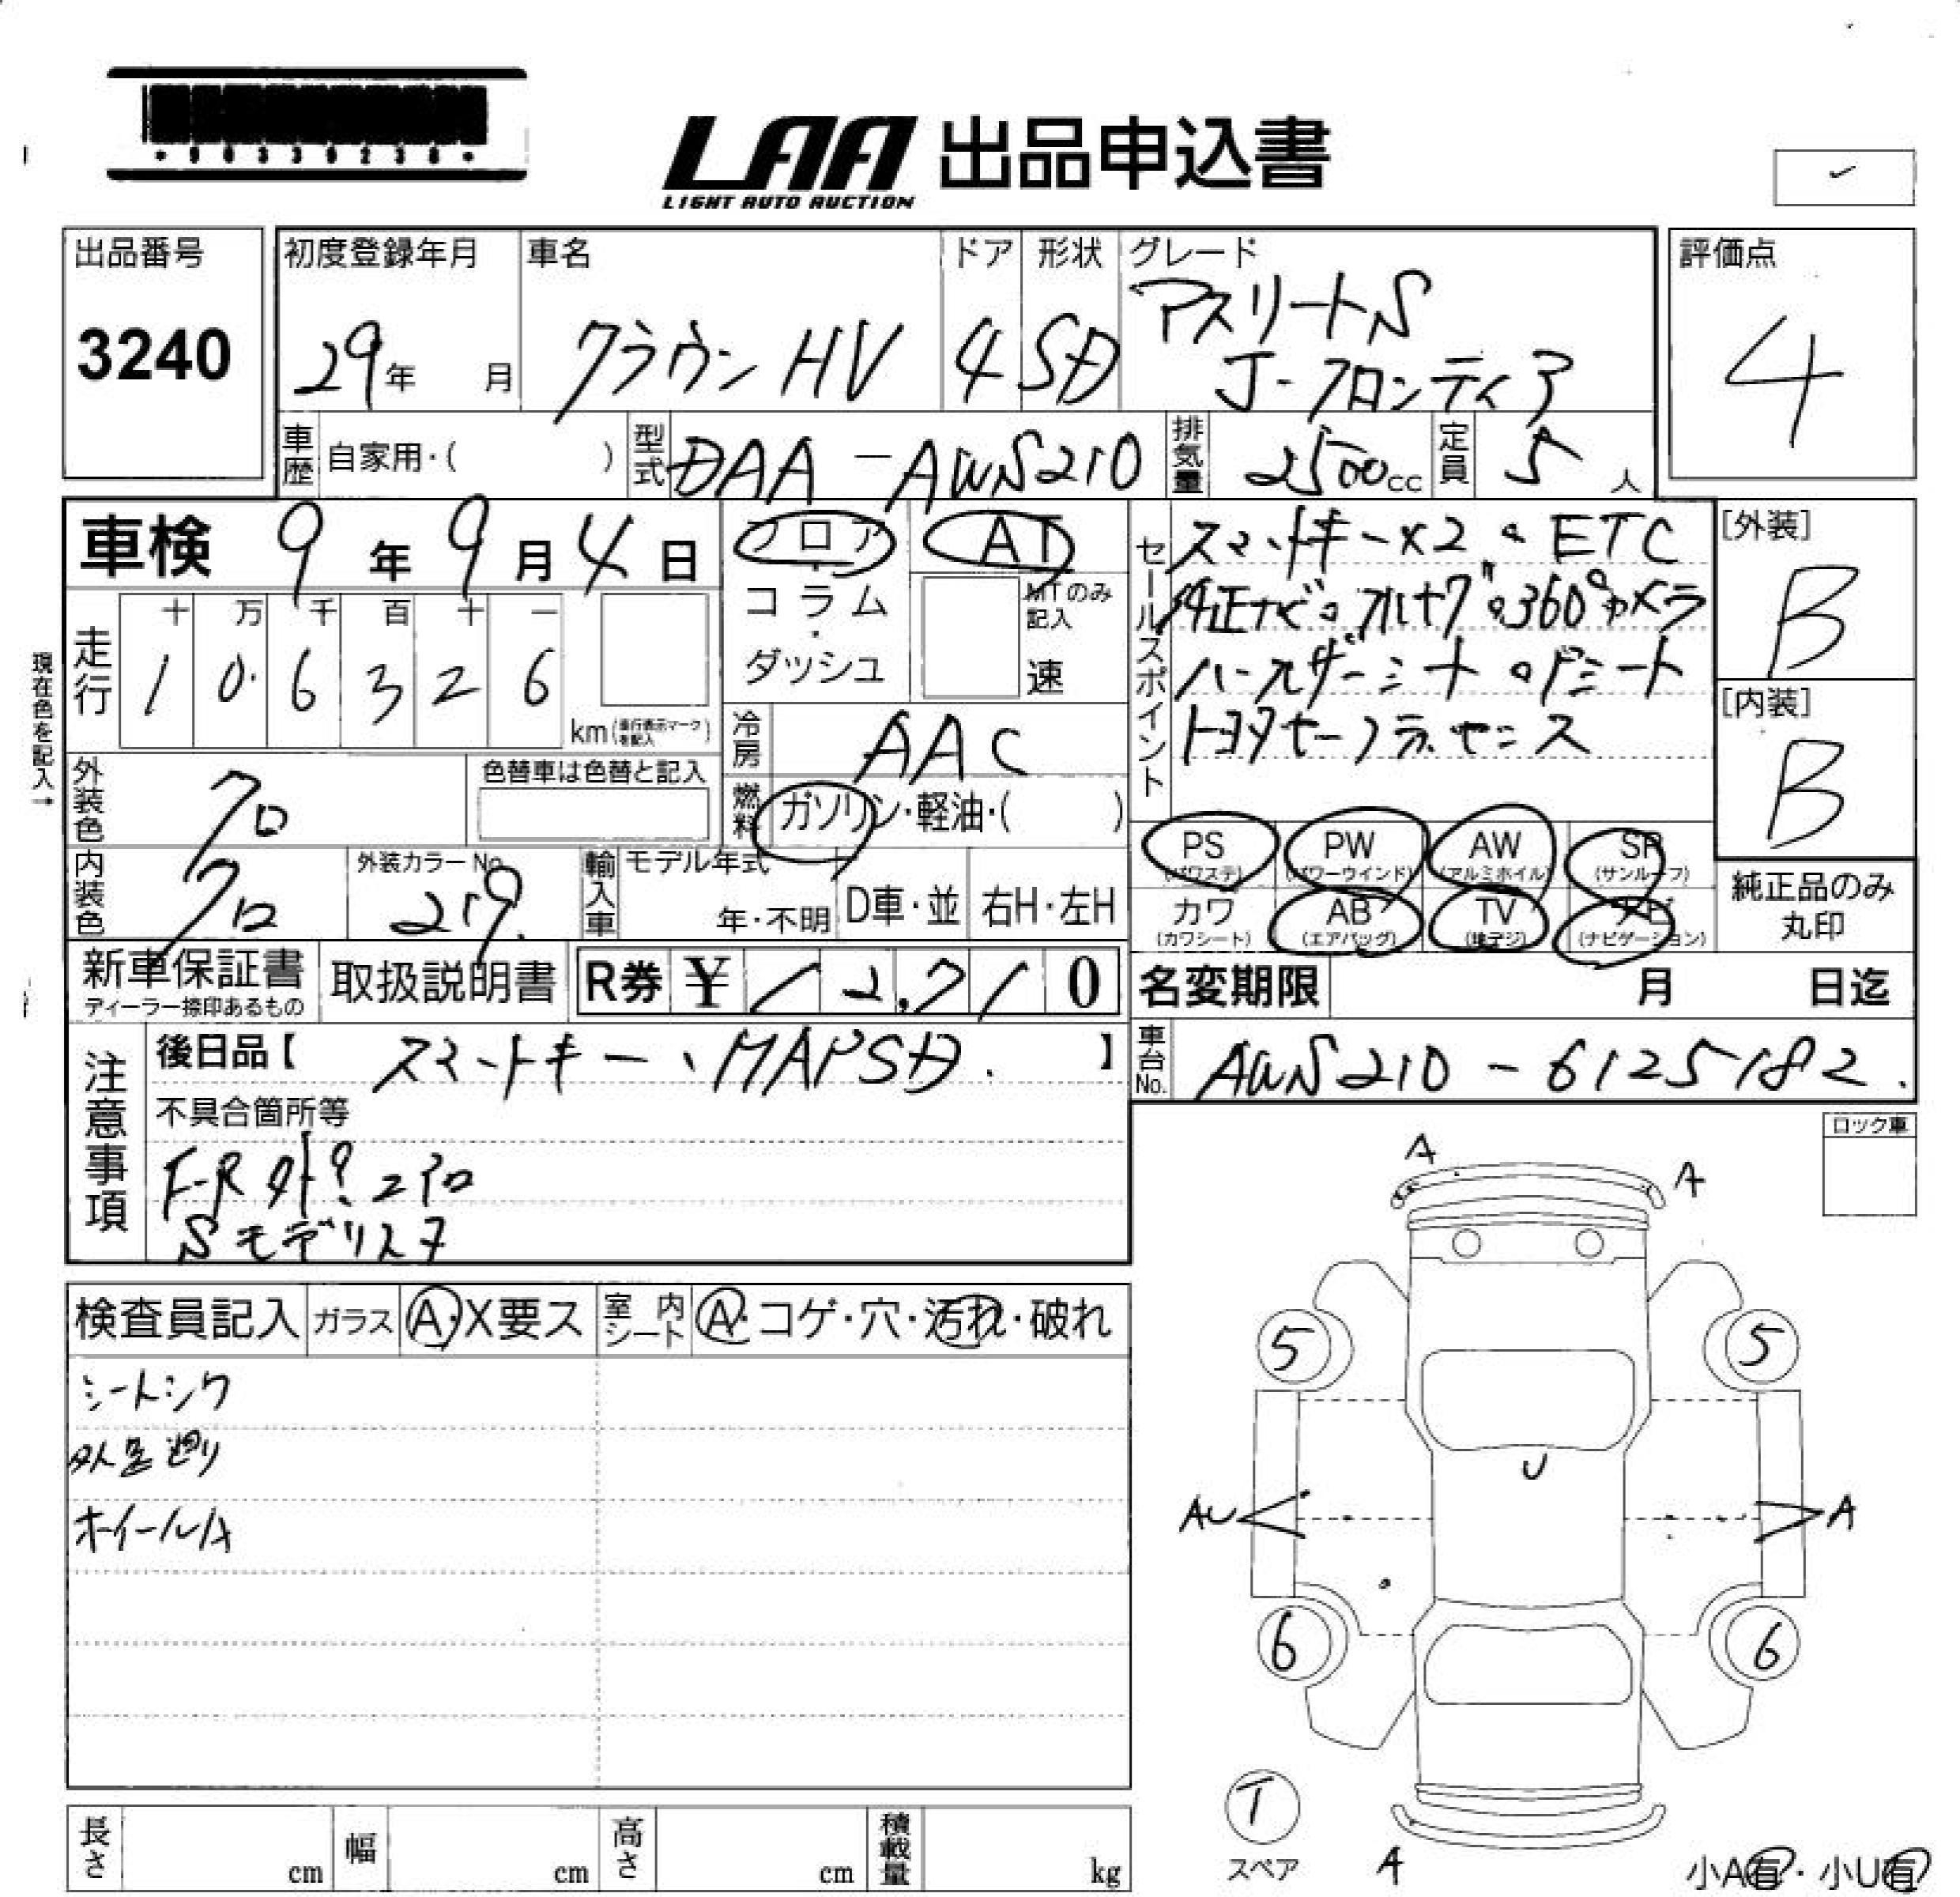 ・90330238・
LAA 出品申込書
LIGHT AUTO AUCTION
出品番号
3240
初度登録年月
29年 月
車名
クラウン HV
ドア
4
形状
SD
グレード
アスリートS
J-フロンティア
評価点
4
車歴 自家用・( )
型式 DAA-AWS210
排気量 2500cc
定員 5人
車検 9年9月4日
フロア
コラム
・
ダッシュ
AT
MTのみ
記入
速
現在色を記入→
走行
十 万 千 百 十 一
1 0. 6 3 2 6
km(走行表示マークを記入)
冷房 AAC
燃料 ガソリン・軽油・( )
外装色 クロ
色替車は色替と記入
内装色 クロ
外装カラーNo.
219.
輸入車 モデル年式
年・不明
D車・並
右H・左H
セールスポイント
スマートキー×2。ETC
純正ナビ。フルセグ。360°カメラ
ハーフレザーシート。Pシート
トヨタセーフティセンス
PS
(パワステ)
PW
(パワーウインド)
AW
(アルミホイル)
SR
(サンルーフ)
カワ
(カワシート)
AB
(エアバッグ)
TV
(地デジ)
ナビ
(ナビゲーション)
[外装]
B
[内装]
B
純正品のみ
丸印
新車保証書
ディーラー捺印あるもの
取扱説明書
R券 ¥12,710
名変期限 月 日迄
車台No. AWS210-6125182.
注意事項
後日品【 スマートキー、MAPSD. 】
不具合箇所等
F-R
Sモデリスタ
検査員記入
ガラス
A・X要ス
室内シート
A・コゲ・穴・汚れ・破れ
シートシワ
足廻り
ホイールA
ロック車
A
A
5
5
U
AU
A
6
6
T
スペア
A
小A有・小U有
長さ cm
幅 cm
高さ cm
積載量 kg